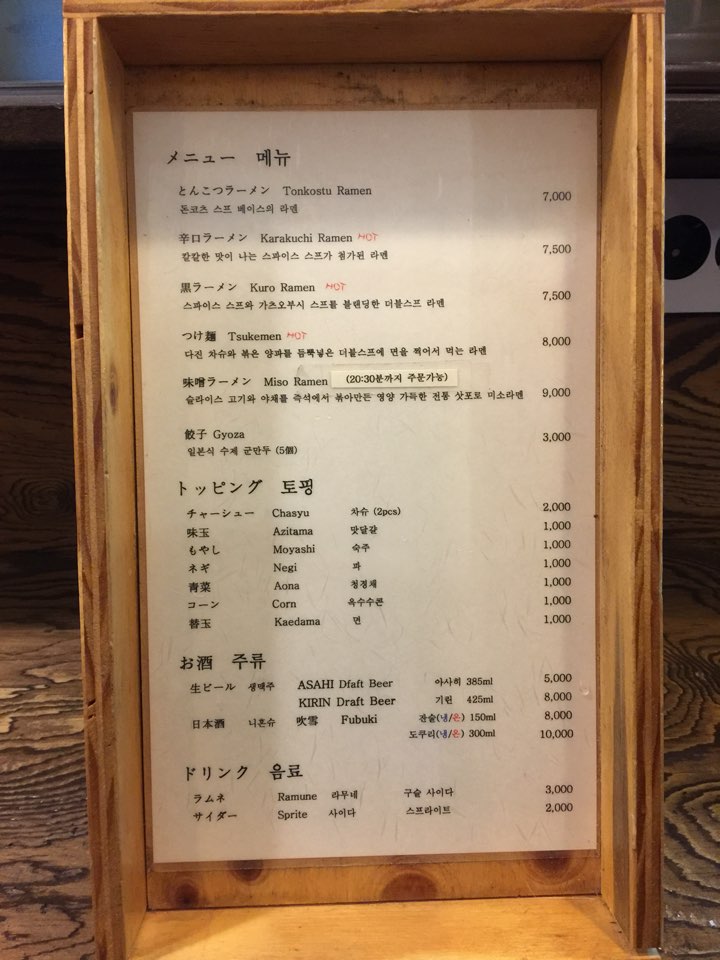 メニュー 메뉴
とんこつラーメン Tonkostu Ramen 7,000
돈코츠 스프 베이스의 라멘
辛口ラーメン Karakuchi Ramen HOT 7,500
칼칼한 맛이 나는 스파이스 스프가 첨가된 라멘
黒ラーメン Kuro Ramen HOT 7,500
스파이스 스프와 가츠오부시 스프를 블랜딩한 더블스프 라멘
つけ麺 Tsukemen HOT 8,000
다진 차슈와 볶은 양파를 듬뿍넣은 더블스프에 면을 찍어서 먹는 라멘
味噌ラーメン Miso Ramen (20:30분까지 주문가능) 9,000
슬라이스 고기와 야채를 즉석에서 볶아만든 영양 가득한 전통 삿포로 미소라멘
餃子 Gyoza 3,000
일본식 수제 군만두 (5個)
トッピング 토핑
チャーシュー Chasyu 차슈 (2pcs) 2,000
味玉 Azitama 맛달걀 1,000
もやし Moyashi 숙주 1,000
ネギ Negi 파 1,000
青菜 Aona 청경채 1,000
コーン Corn 옥수수콘 1,000
替玉 Kaedama 면 1,000
お酒 주류
生ビール 생맥주 ASAHI Dfaft Beer 아사히 385ml 5,000
KIRIN Draft Beer 기린 425ml 8,000
日本酒 니혼슈 吹雪 Fubuki 잔술(냉/온) 150ml 8,000
도쿠리(냉/온) 300ml 10,000
ドリンク 음료
ラムネ Ramune 라무네 구슬 사이다 3,000
サイダー Sprite 사이다 스프라이트 2,000